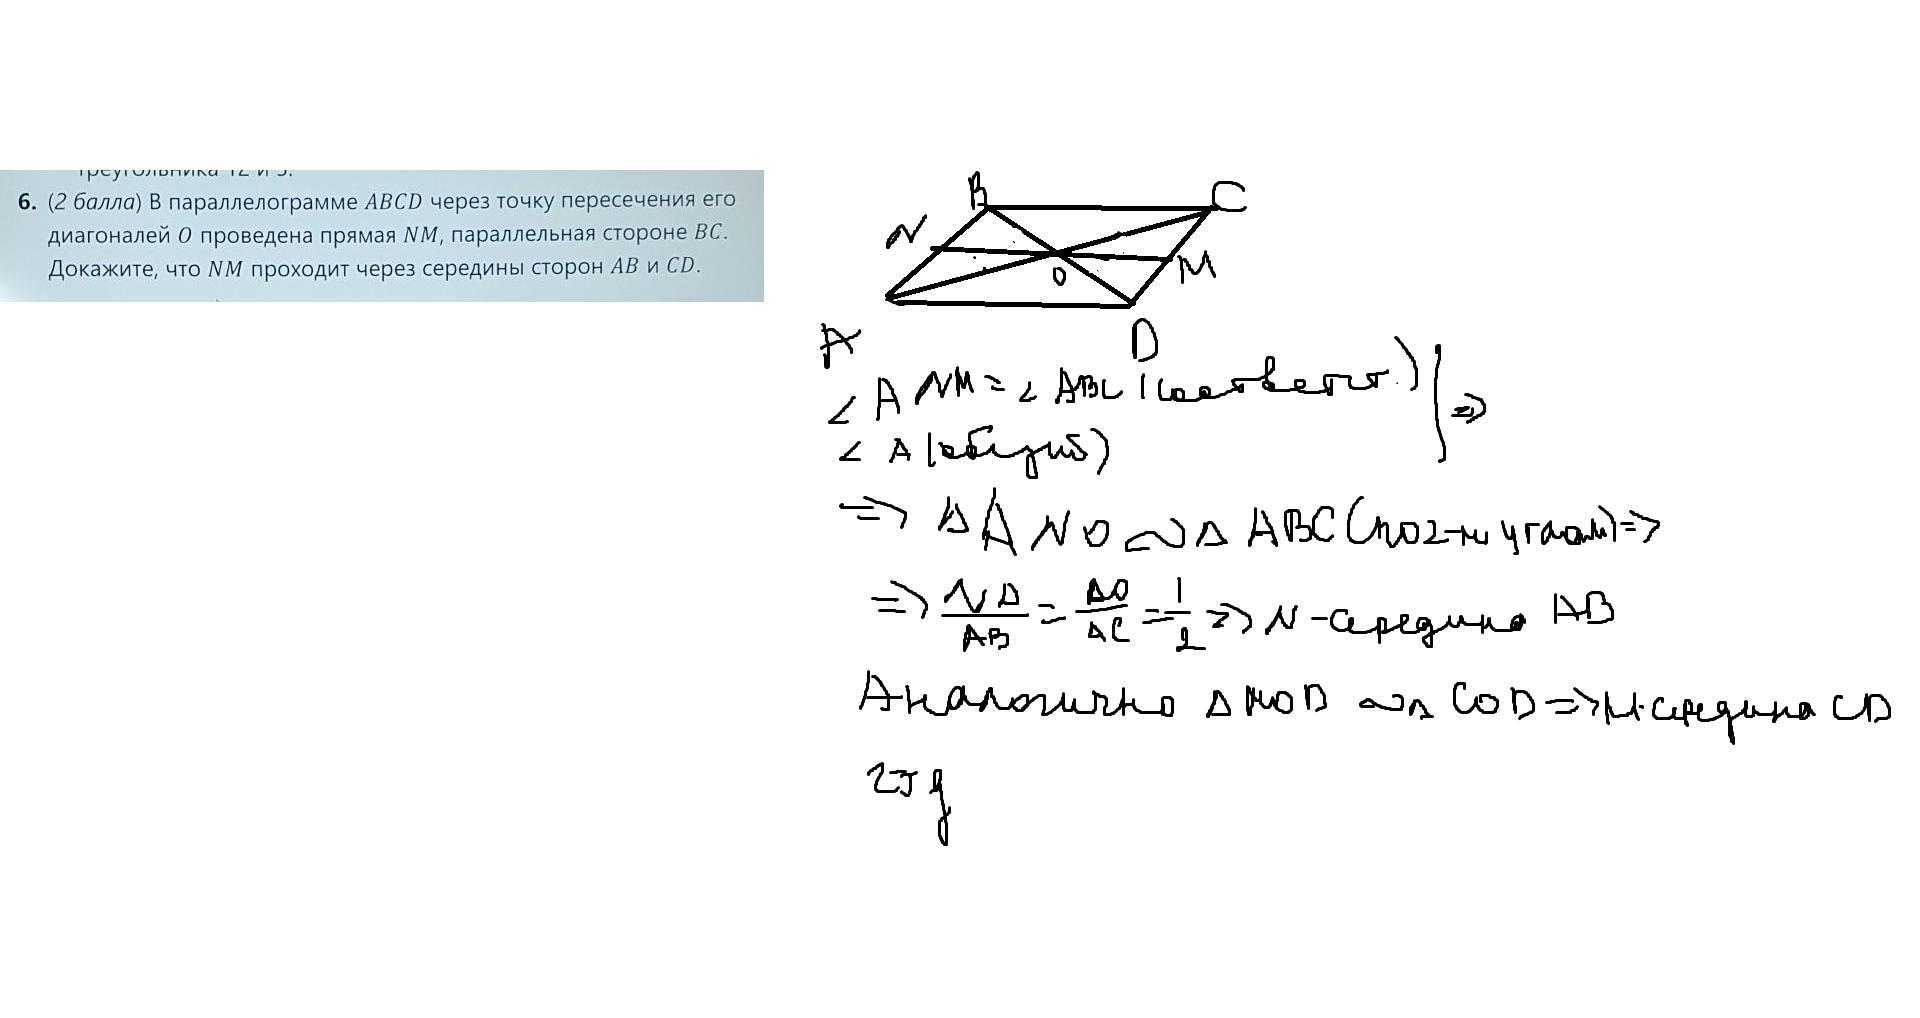 треугольника 12 и 5.
6. (2 балла) В параллелограмме ABCD через точку пересечения его
диагоналей O проведена прямая NM, параллельная стороне BC.
Докажите, что NM проходит через середины сторон AB и CD.
B
C
N
M
O
A
D
∠ANM = ∠ABC (соответст.) | =>
∠A (общий)
=> ΔANO ~ Δ ABC (по 2-м углам) =>
=> NA/AB = AO/AC = 1/2 => N - середина AB
Аналогично Δ MOD ~ Δ COD => M - середина CD